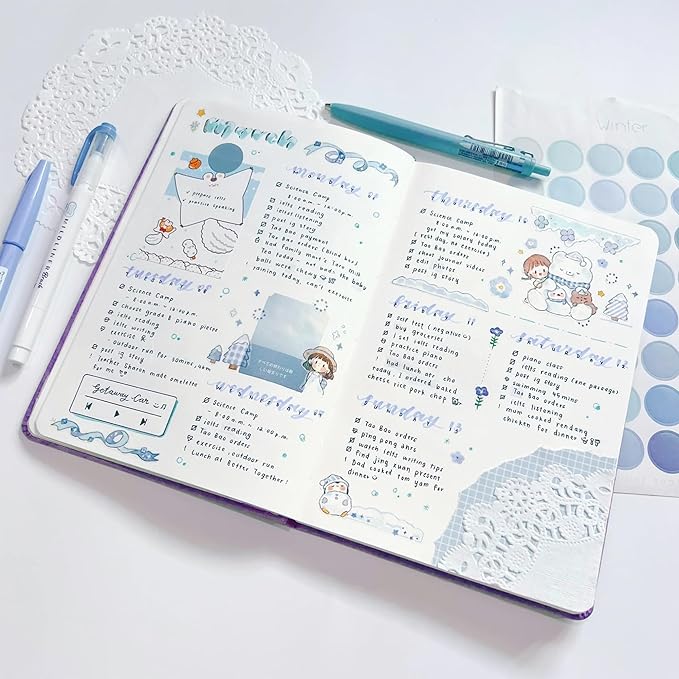 march
prepare ielts
practice speaking
monday
Science Camp
8:00am - 12:00pm
ielts reading
ielts listening
post ig story
Tao Bao payment
Tao Bao orders
had Family Mart's
Tea today
balls were chewy
raining today, can't exercise
tuesday
Science Camp
8:00am - 12:00pm
choose grade 8 piano pieces
ielts reading
exercise
outdoor run for
post ig story
Teacher Sharon made omelette
for me
Getaway Car
wednesday
Science Camp
8:00am - 12:00pm
ielts reading
Tao Bao orders
exercise, outdoor run
! Lunch at Better Together!
すべての終わりは新
しい始まりです
thursday 10
Science Camp
8:00am - 12:00pm
got my salary today
(rest day, no exercise)
Tao Bao orders
short journal videos
edit photos
post ig story
friday 11
self test (negative)
buy groceries
1 set ielts reading
practice piano
Tao Bao orders
Hud lunch
today. I ordered baked
cheese rice pork chop
saturday 12
piano class
ielts reading (one passage)
post ig story
swimming 45mins
ielts listening
! mum cooked rendang
chicken for dinner
sunday 13
Tao Bao orders
ping pong 2hrs
watch ielts writing tips
find jing xuan present
! Dad cooked tom yam for
dinner
Winter
MILDLINER Brush